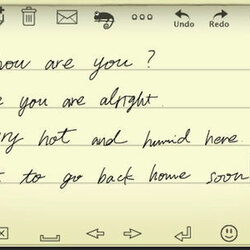 Undo Redo
how are you ?
you are alright.
hot and humid here.
to go back home soon